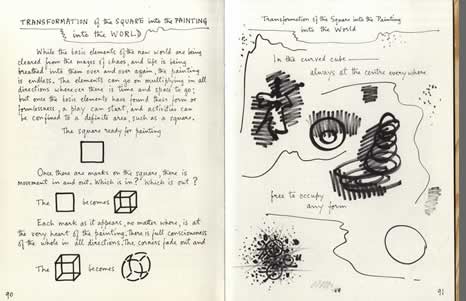 TRANSFORMATION of the SQUARE into the PAINTING
into the WORLD
While the basic elements of the new world are being
cleared from the mazes of chaos, and life is being
breathed into them over and over again, the painting
is endless. The elements can go on multiplying in all
directions wherever there is time and space to go;
but once the basic elements have found their form or
formlessness, a play can start, and activities can
be confined to a definite area, such as a square.
The square ready for painting
Once there are marks on the square, there is
movement in and out. Which is in? Which is out?
The becomes
Each mark as it appears, no matter where, is at
the very heart of the painting. There is full consciousness
of the whole in all directions. The corners fade out and
The becomes
90
Transformation of the Square into the Painting
into the World
In the curved cube
always at the centre everywhere
free to occupy
any form
91